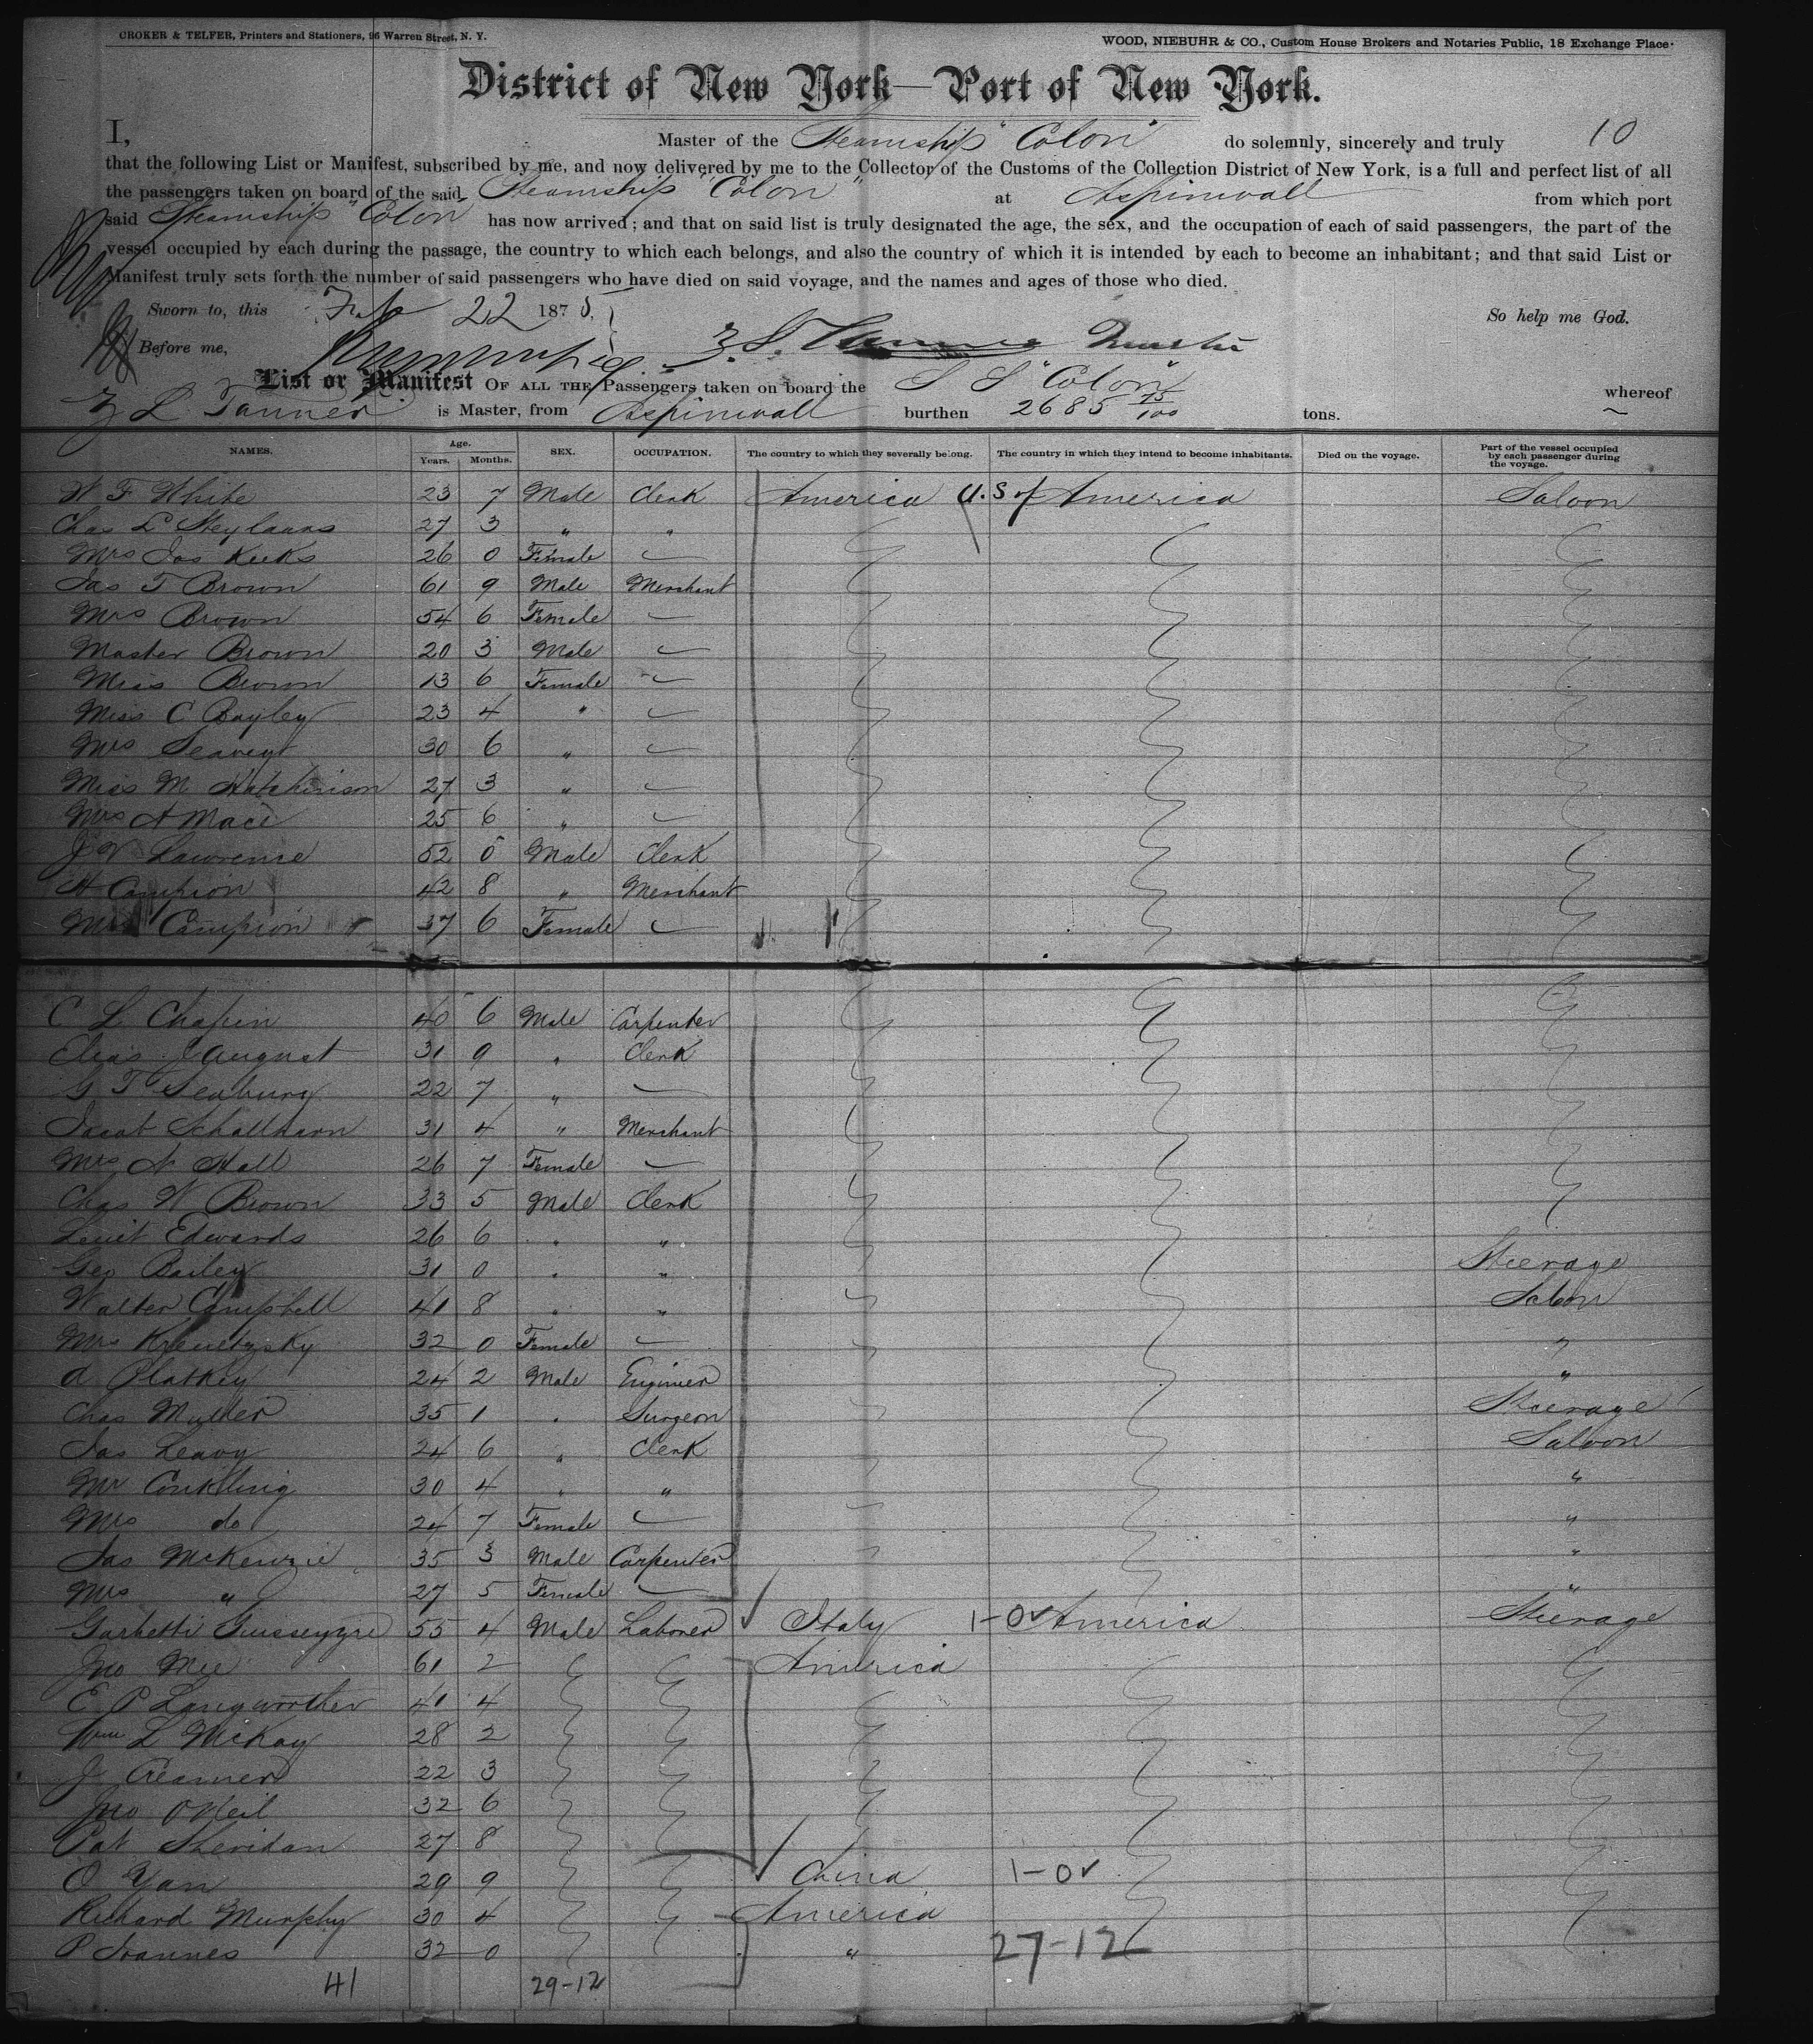 CROKER & TELFER, Printers and Stationers, 96 Warren Street, N. Y.
WOOD, NIEBUHR & CO., Custom House Brokers and Notaries Public, 18 Exchange Place.
District of New York—Port of New York.
I, Master of the Steamship "Colon" do solemnly, sincerely and truly 10
that the following List or Manifest, subscribed by me, and now delivered by me to the Collector of the Customs of the Collection District of New York, is a full and perfect list of all
the passengers taken on board of the said Steamship "Colon" at Aspinwall from which port
said Steamship "Colon" has now arrived; and that on said list is truly designated the age, the sex, and the occupation of each of said passengers, the part of the
vessel occupied by each during the passage, the country to which each belongs, and also the country of which it is intended by each to become an inhabitant; and that said List or
Manifest truly sets forth the number of said passengers who have died on said voyage, and the names and ages of those who died.
Sworn to, this Feb 22 1875, So help me God.
Before me, Z. L. Tanner Master
List or Manifest OF ALL THE Passengers taken on board the S S "Colon" whereof
Z L Tanner is Master, from Aspinwall burthen 2685 75/100 tons.
NAMES. Age. Years. Months. SEX. OCCUPATION. The country to which they severally belong. The country in which they intend to become inhabitants. Died on the voyage. Part of the vessel occupied by each passenger during the voyage.
W F White 23 7 Male Clerk America U.S of America Saloon
Chas L 27 3 " "
Mrs Jas Keeks 26 0 Female —
Jas T Brown 61 9 Male Merchant
Mrs Brown 54 6 Female —
Master Brown 20 3 Male —
Miss Brown 13 6 Female —
Miss C Bayley 23 4 " —
Mrs 30 6 " —
Miss M Hutchinson 27 3 " —
Mrs A Mace 25 6 " —
J V Lawrence 52 0 Male Clerk
H Campion 42 8 " Merchant
Mrs Campion 37 6 Female —
C L Chapin 40 6 Male Carpenter
Elias J August 31 9 " Clerk
G T Seabury 22 7 " —
Jacob 31 4 " Merchant
Mrs N Hall 26 7 Female —
Chas W Brown 33 5 Male Clerk
Lieut Edwards 26 6 " "
Geo Bailey 31 0 " " Steerage
Walter Campbell 41 8 " " Saloon
Mrs 32 0 Female — "
A Plathey 24 2 Male Engineer "
Chas Muller 35 1 " Surgeon Steerage
Jas Leavy 24 6 " Clerk Saloon
Mr Conkling 30 4 " " "
Mrs do 24 7 Female — "
Jas McKenzie 35 3 Male Carpenter "
Mrs " 27 5 Female — "
Garbetti 55 4 Male Laborer Italy 1-0 America Steerage
Jno Mee 61 2 America
E P Langworther 41 4
Wm L McKay 28 2
J Creamer 22 3
Jno ONeil 32 6
Pat Sheridan 27 8
O Yan 29 9 China 1-0
Richard Murphy 30 4 America
P Ioannes 32 0 " 27-12
41 29-12